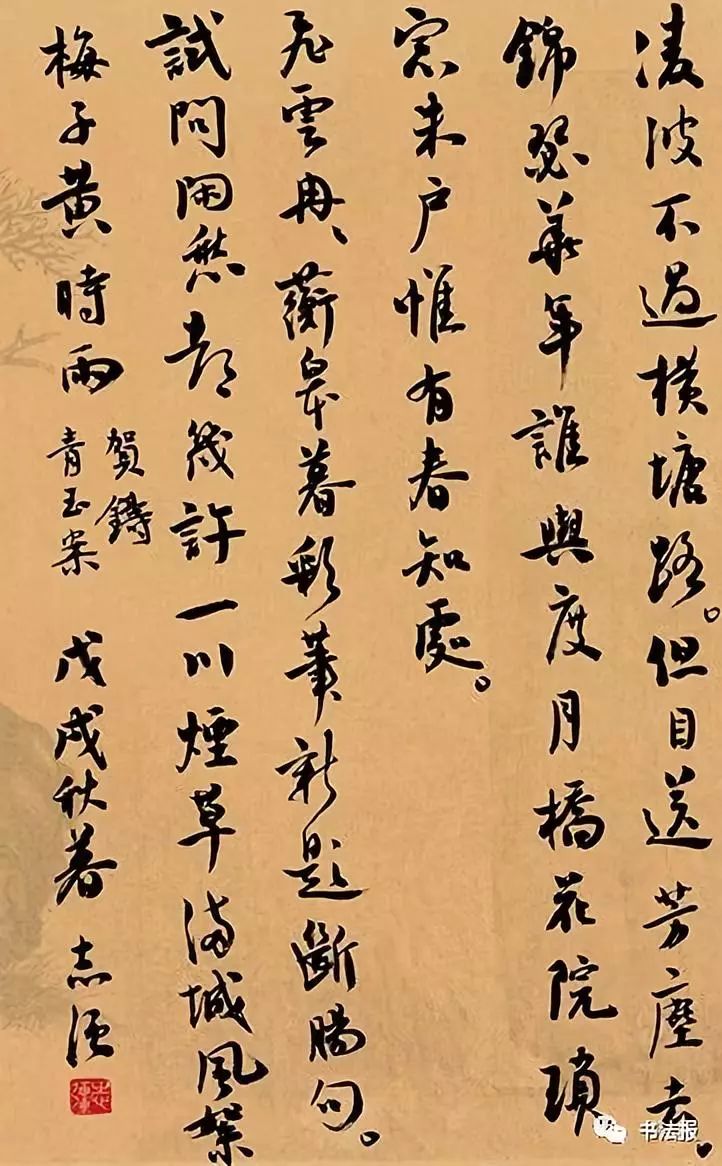 凌波不過橫塘路。但目送芳塵去。
錦瑟華年誰與度月橋花院瑣
窓朱户惟有春知處。
飛雲冉、蘅皋暮彩筆新題斷腸句。
試問閑愁都幾許一川煙草滿城風絮
梅子黃時雨
賀鑄
青玉案
戊戌秋暮
书法报